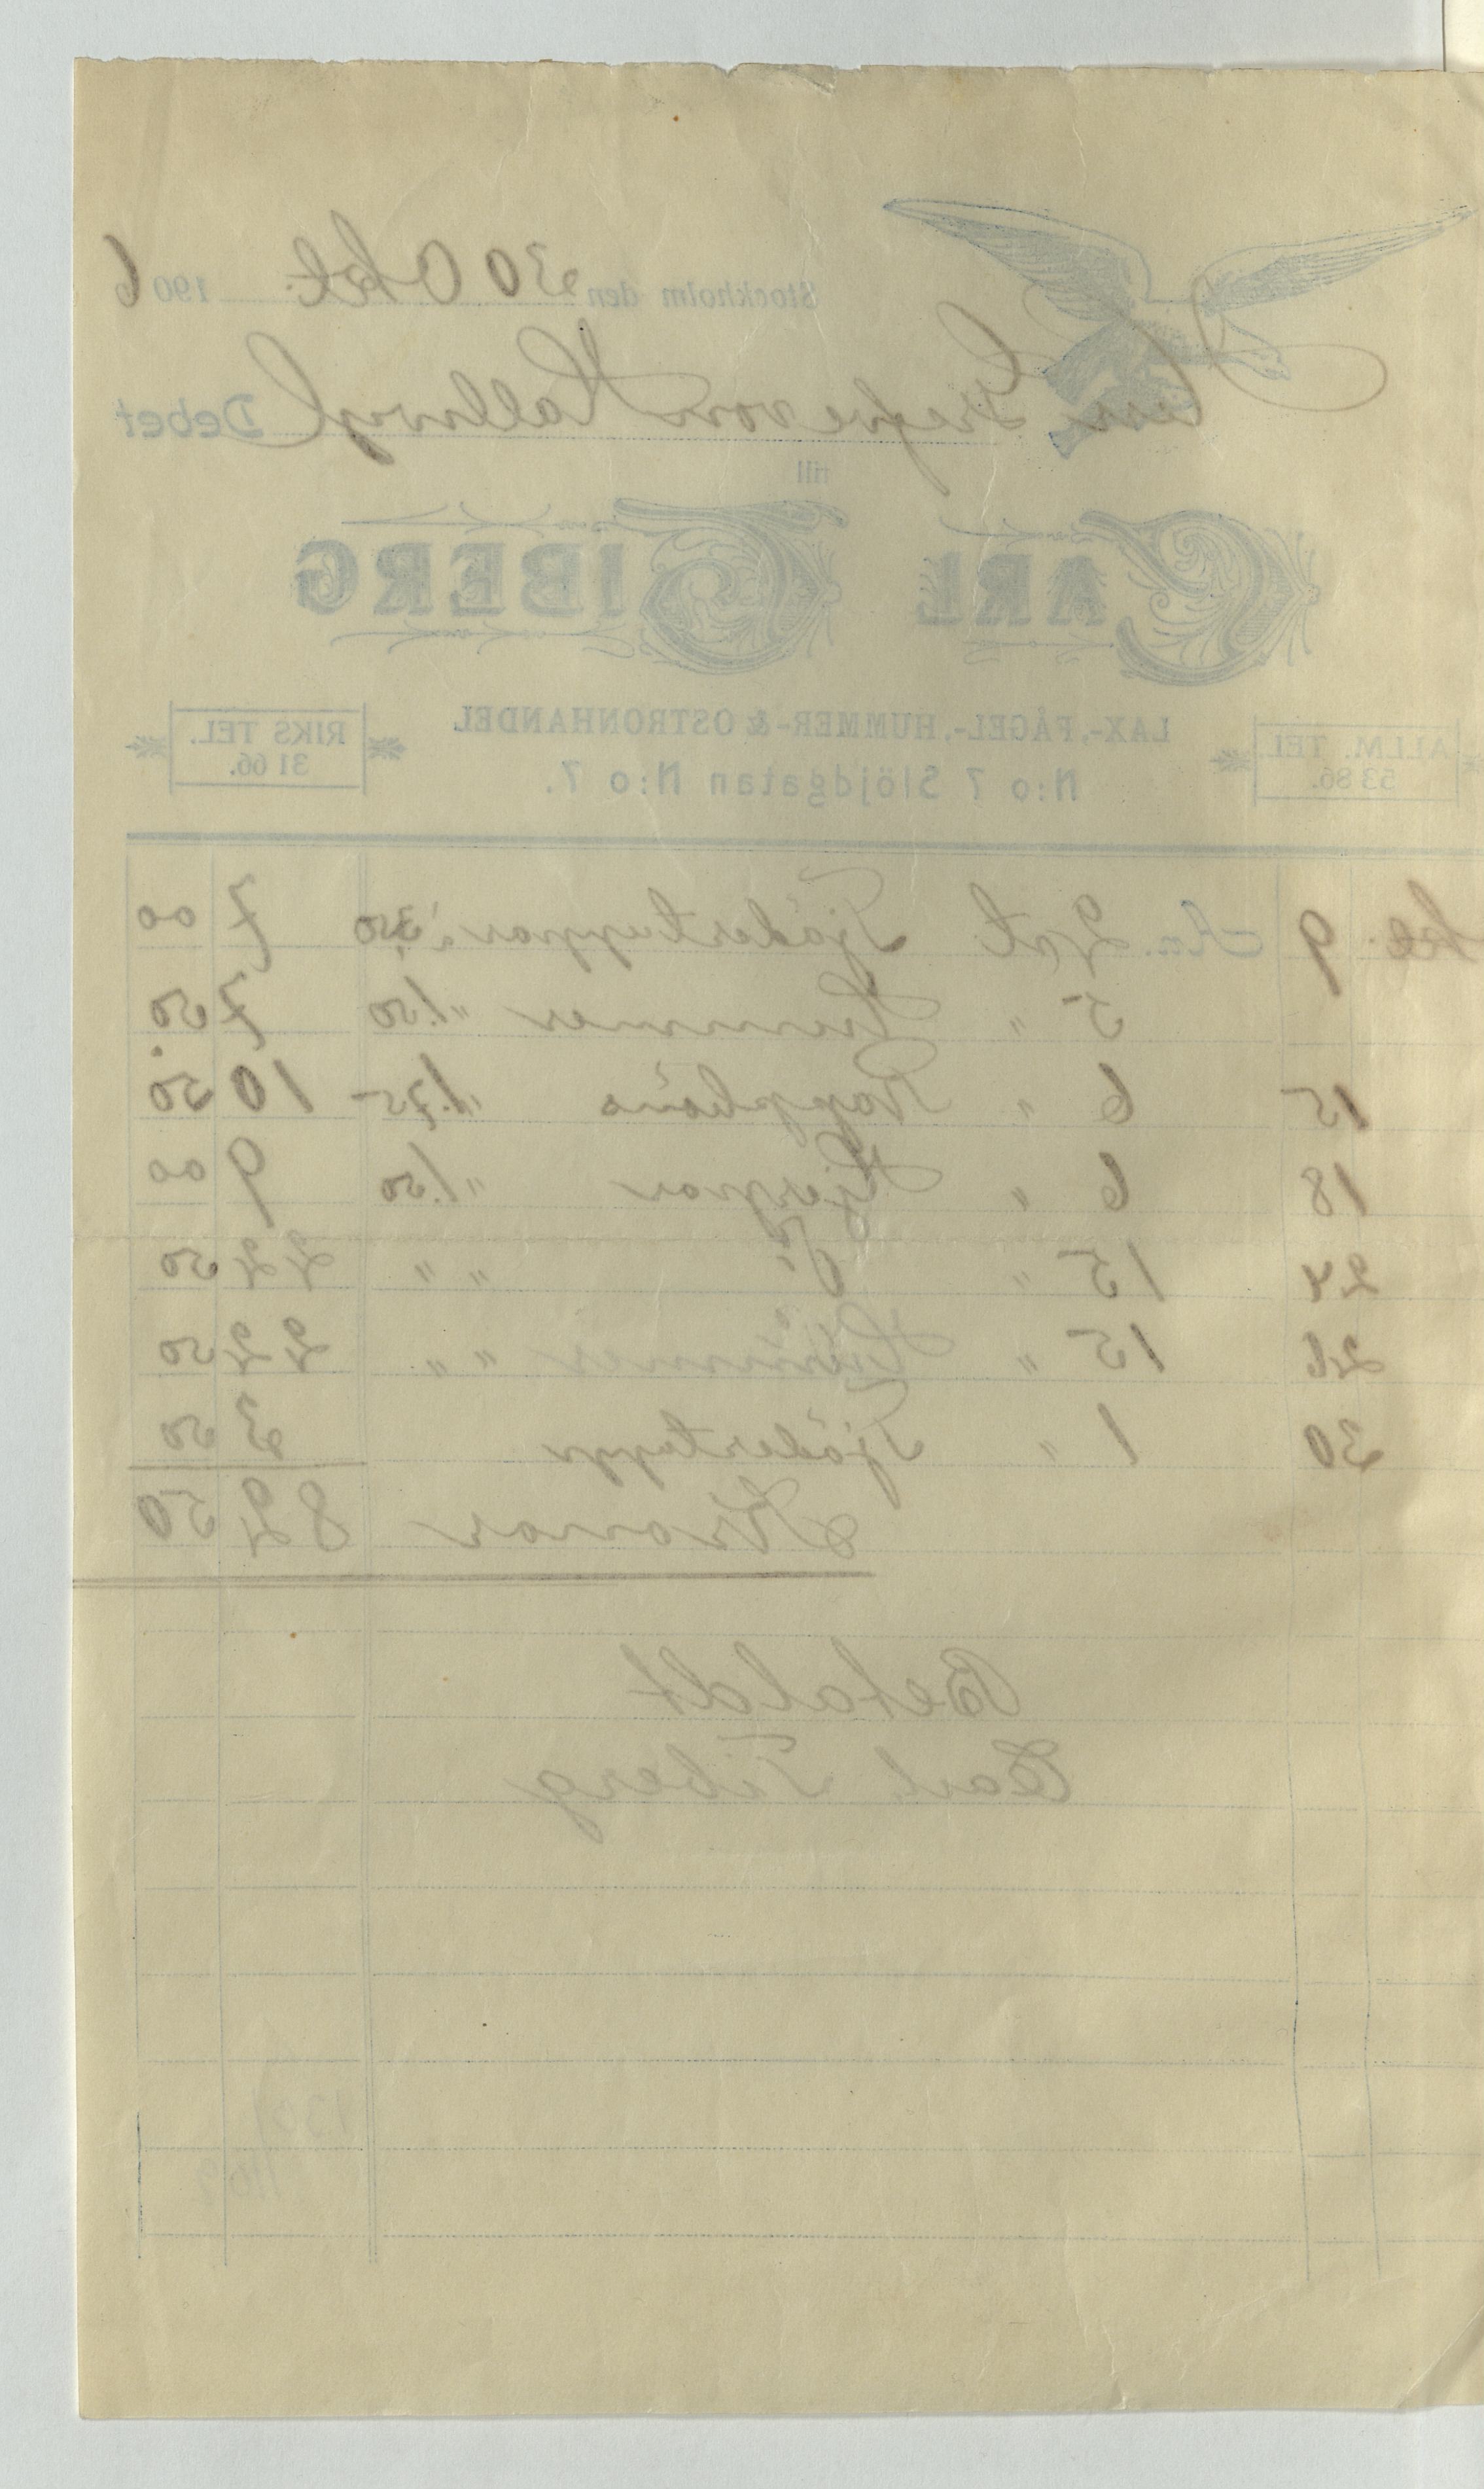 Stockholm den 30 Okt. 1906
Herr Grefve von Hallwyl Debet
till
CARL TIBERG
LAX-, FÅGEL-, HUMMER- & OSTRONHANDEL
N:o 7 Slöjdgatan N:o 7.
ALLM. TEL. 53 86.
RIKS TEL. 31 66.
kt. 9 2 st Tjädertuppar à 3,50 7 00
5 " Hummer " 1.50 7 50
15 6 " Rapphöns " 1.75 10 50
18 6 " Hjerpar " 1.50 9 00
24 15 " D:o " " 22 50
26 15 " Hummer " " 22 50
30 1 " Tjädertupp 3 50
Kronor 82 50
Betaldt
Carl Tiberg